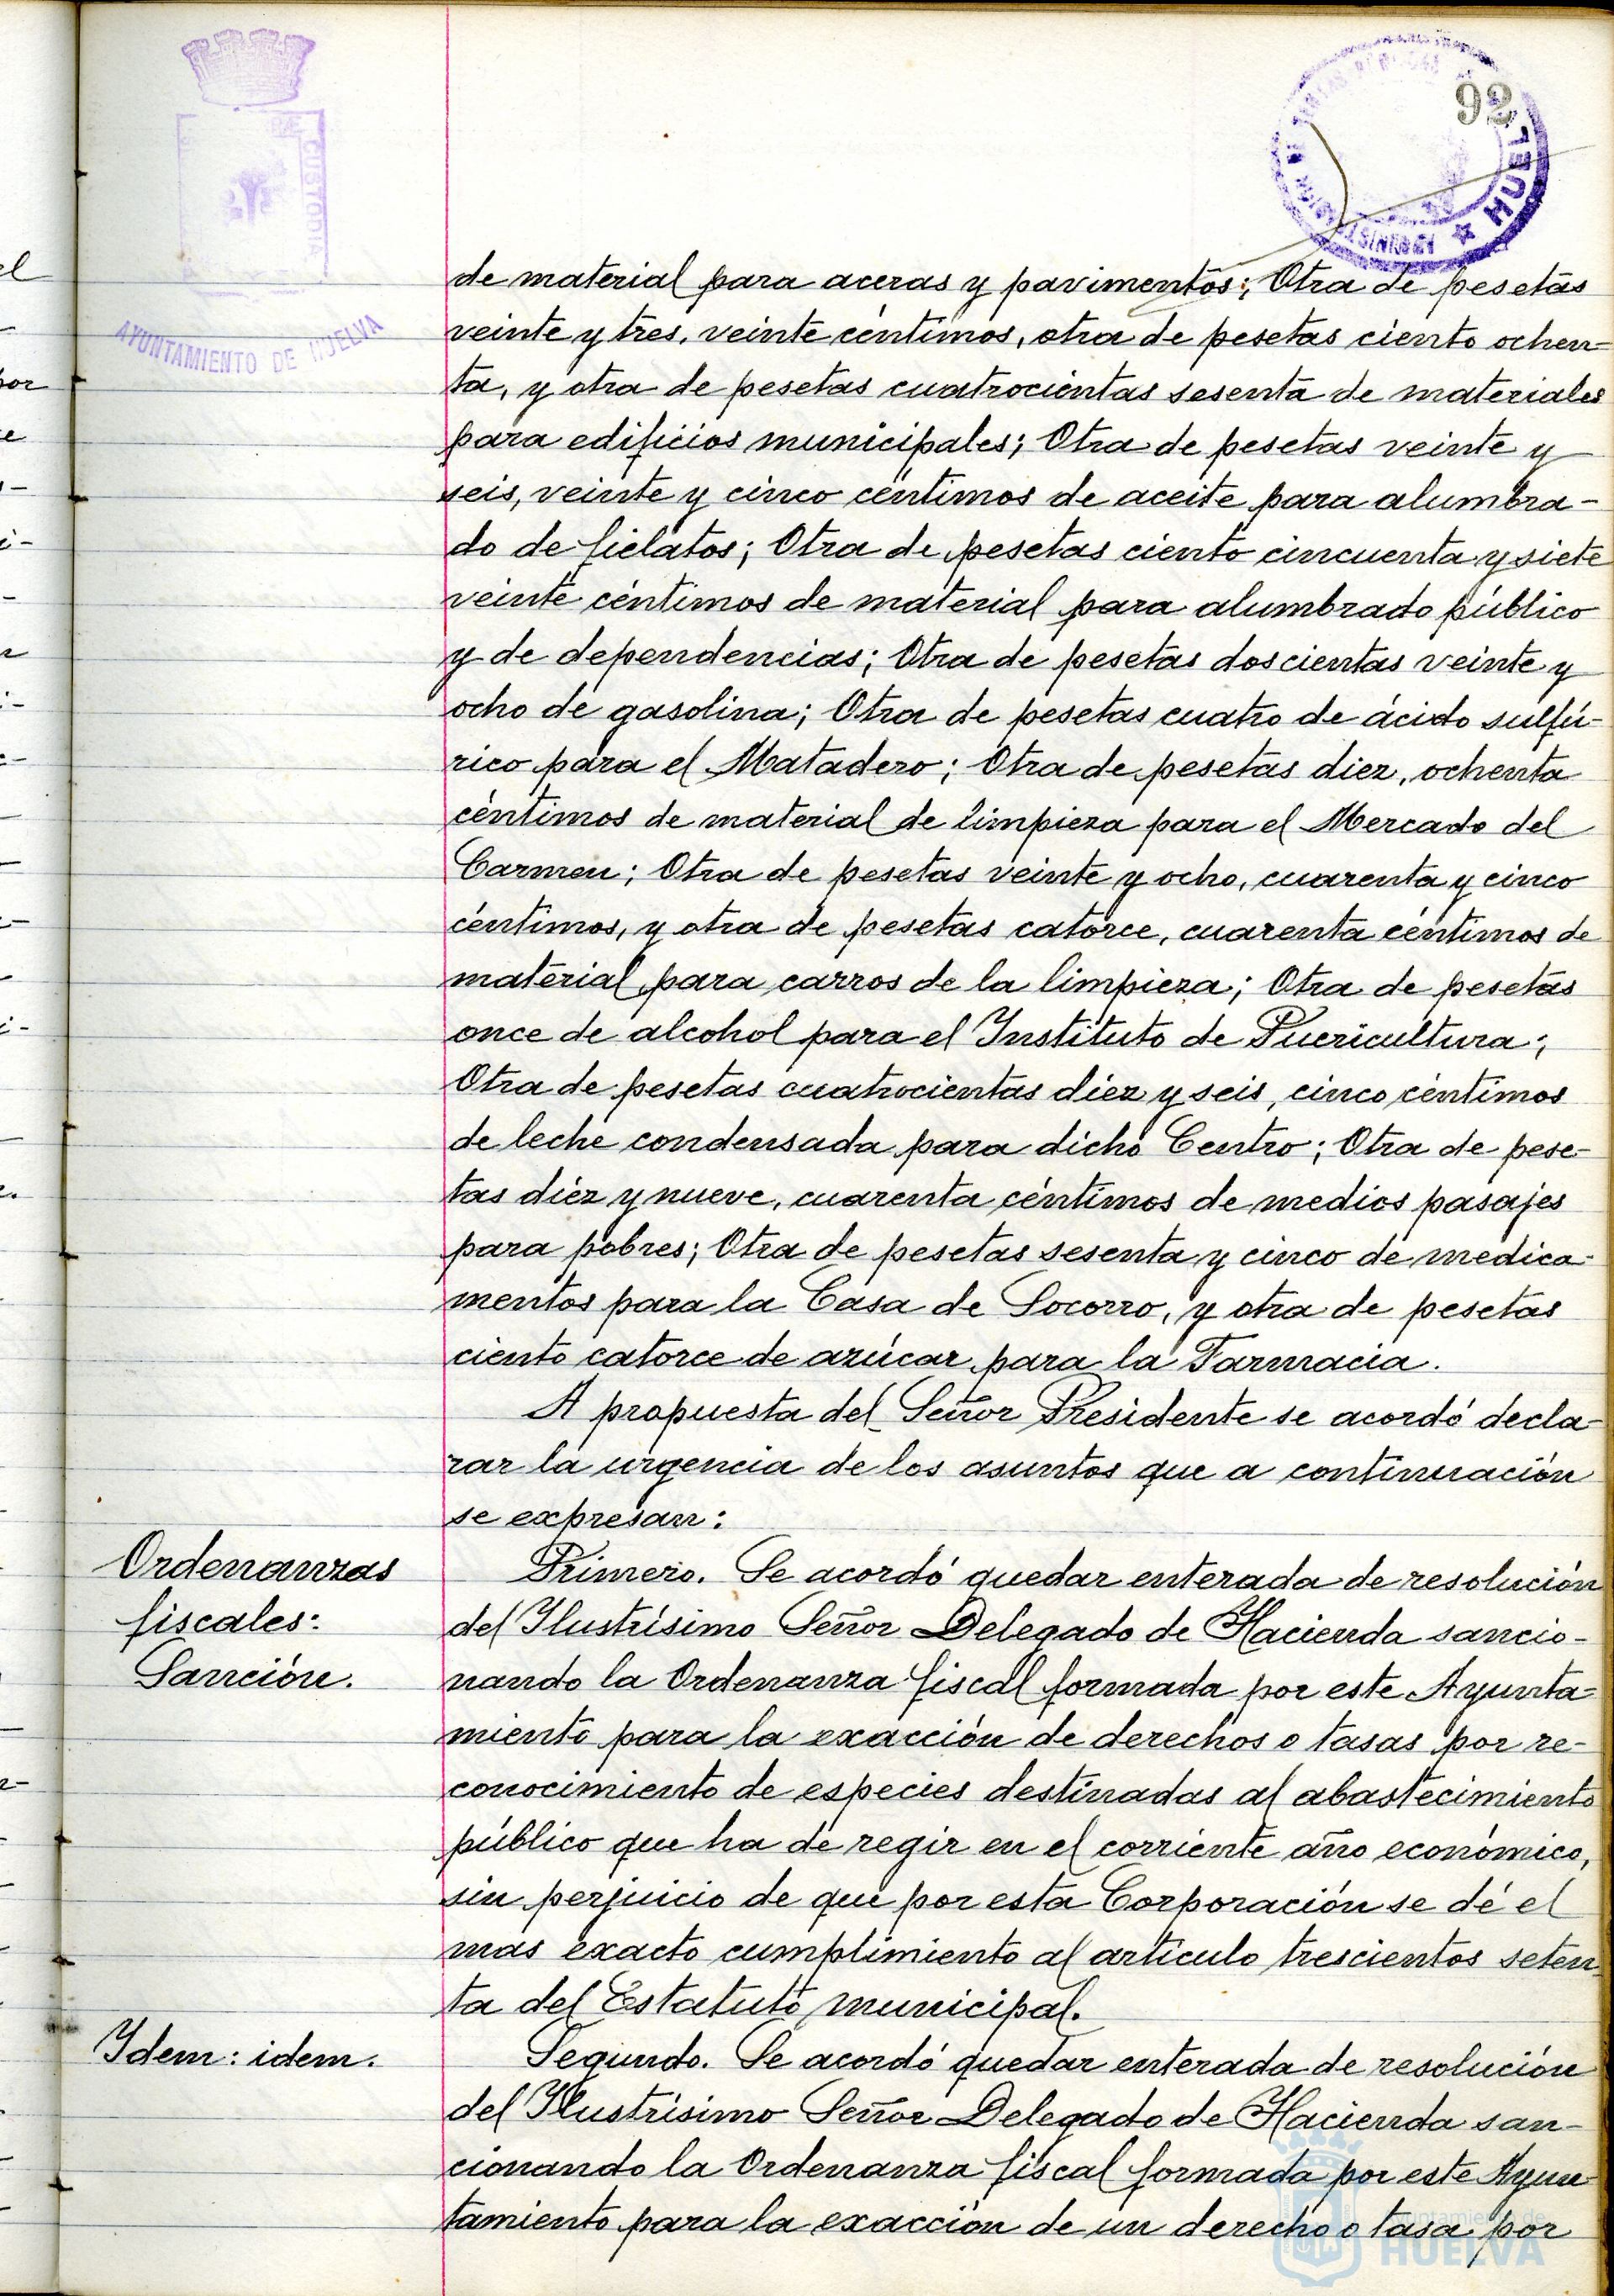 92
HUEL
CUSTODIA
AYUNTAMIENTO DE HUELVA
de material para aceras y pavimentos; Otra de pesetas
veinte y tres, veinte céntimos, otra de pesetas ciento ochen-
ta, y otra de pesetas cuatrocientas sesenta de materiales
para edificios municipales; Otra de pesetas veinte y
seis, veinte y cinco céntimos de aceite para alumbra-
do de fielatos; Otra de pesetas ciento cincuenta y siete
veinte céntimos de material para alumbrado público
y de dependencias; Otra de pesetas doscientas veinte y
ocho de gasolina; Otra de pesetas cuatro de ácido sulfú-
rico para el Matadero; Otra de pesetas diez, ochenta
céntimos de material de limpieza para el Mercado del
Carmen; Otra de pesetas veinte y ocho, cuarenta y cinco
céntimos, y otra de pesetas catorce, cuarenta céntimos de
material para carros de la limpieza; Otra de pesetas
once de alcohol para el Instituto de Puericultura;
Otra de pesetas cuatrocientas diez y seis, cinco céntimos
de leche condensada para dicho Centro; Otra de pese-
tas diez y nueve, cuarenta céntimos de medios pasajes
para pobres; Otra de pesetas sesenta y cinco de medica-
mentos para la Casa de Socorro, y otra de pesetas
ciento catorce de azúcar para la Farmacia.
A propuesta del Señor Presidente se acordó decla-
rar la urgencia de los asuntos que a continuación
se expresan:
Ordenanzas
fiscales:
Sanción.
Primero. Se acordó quedar enterada de resolución
del Ilustrísimo Señor Delegado de Hacienda sancio-
nando la Ordenanza fiscal formada por este Ayunta-
miento para la exacción de derechos o tasas por re-
conocimiento de especies destinadas al abastecimiento
público que ha de regir en el corriente año económico,
sin perjuicio de que por esta Corporación se dé el
mas exacto cumplimiento al artículo trescientos seten
ta del Estatuto municipal.
Idem: idem.
Segundo. Se acordó quedar enterada de resolución
del Ilustrísimo Señor Delegado de Hacienda san-
cionando la Ordenanza fiscal formada por este Ayun
tamiento para la exacción de un derecho o tasa por
Ayuntamiento de
HUELVA